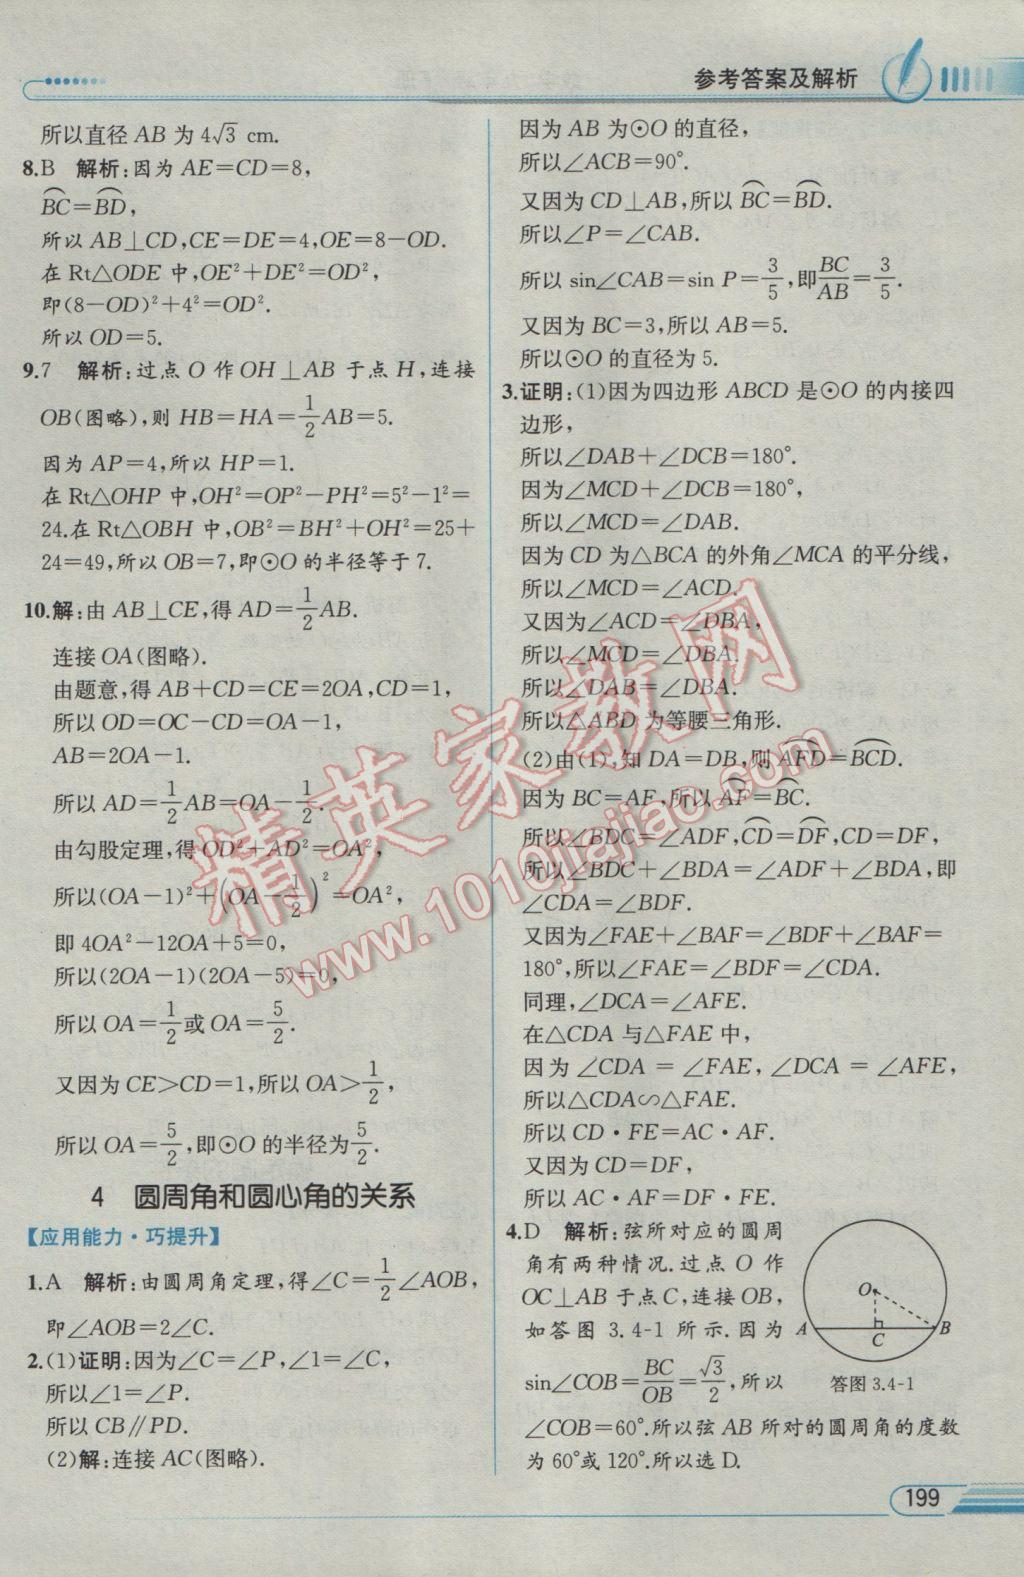 参考答案及解析
所以直径 AB 为 4√3 cm.
8.B 解析:因为 AE=CD=8,
BC=BD,
所以 AB⊥CD,CE=DE=4,OE=8-OD.
在 Rt△ODE 中,OE²+DE²=OD²,
即(8-OD)²+4²=OD².
所以 OD=5.
9.7 解析:过点 O 作 OH⊥AB 于点 H,连接
OB(图略),则 HB=HA=1/2AB=5.
因为 AP=4,所以 HP=1.
在 Rt△OHP 中,OH²=OP²-PH²=5²-1²=
24.在 Rt△OBH 中,OB²=BH²+OH²=25+
24=49,所以 OB=7,即⊙O 的半径等于 7.
10.解:由 AB⊥CE,得 AD=1/2AB.
连接 OA(图略).
由题意,得 AB+CD=CE=2OA,CD=1,
所以 OD=OC-CD=OA-1,
AB=2OA-1.
所以 AD=1/2AB=OA-1/2.
由勾股定理,得 OD²+AD²=OA²,
所以(OA-1)²+(OA-1/2)²=OA²,
即 4OA²-12OA+5=0,
所以(2OA-1)(2OA-5)=0,
所以 OA=1/2或 OA=5/2.
又因为 CE>CD=1,所以 OA>1/2,
所以 OA=5/2,即⊙O 的半径为5/2.
4 圆周角和圆心角的关系
【应用能力·巧提升】
1.A 解析:由圆周角定理,得∠C=1/2∠AOB,
即∠AOB=2∠C.
2.(1)证明:因为∠C=∠P,∠1=∠C,
所以∠1=∠P.
所以 CB∥PD.
(2)解:连接 AC(图略).
因为 AB 为⊙O 的直径,
所以∠ACB=90°.
又因为 CD⊥AB,所以 BC=BD.
所以∠P=∠CAB.
所以 sin∠CAB=sin P=3/5,即BC/AB=3/5.
又因为 BC=3,所以 AB=5.
所以⊙O 的直径为 5.
3.证明:(1)因为四边形 ABCD 是⊙O 的内接四
边形,
所以∠DAB+∠DCB=180°.
因为∠MCD+∠DCB=180°,
所以∠MCD=∠DAB.
因为 CD 为△BCA 的外角∠MCA 的平分线,
所以∠MCD=∠ACD.
又因为∠ACD=∠DBA,
所以∠MCD=∠DBA.
所以∠DAB=∠DBA.
所以△ABD 为等腰三角形.
(2)由(1),知 DA=DB,则 AFD=BCD.
因为 BC=AF,所以 AF=BC.
所以∠BDC=∠ADF,CD=DF,CD=DF,
所以∠BDC+∠BDA=∠ADF+∠BDA,即
∠CDA=∠BDF.
又因为∠FAE+∠BAF=∠BDF+∠BAF=
180°,所以∠FAE=∠BDF=∠CDA.
同理,∠DCA=∠AFE.
在△CDA 与△FAE 中,
因为∠CDA=∠FAE,∠DCA=∠AFE,
所以△CDA∽△FAE.
所以 CD·FE=AC·AF.
又因为 CD=DF,
所以 AC·AF=DF·FE.
4.D 解析:弦所对应的圆周
角有两种情况.过点 O 作
OC⊥AB 于点 C,连接 OB,
如答图 3.4-1 所示.因为
sin∠COB=BC/OB=√3/2,所以
∠COB=60°.所以弦 AB 所对的圆周角的度数
为 60°或 120°.所以选 D.
O
A
C
B
答图 3.4-1
199
精英家教网
www.1010jiajiao.com